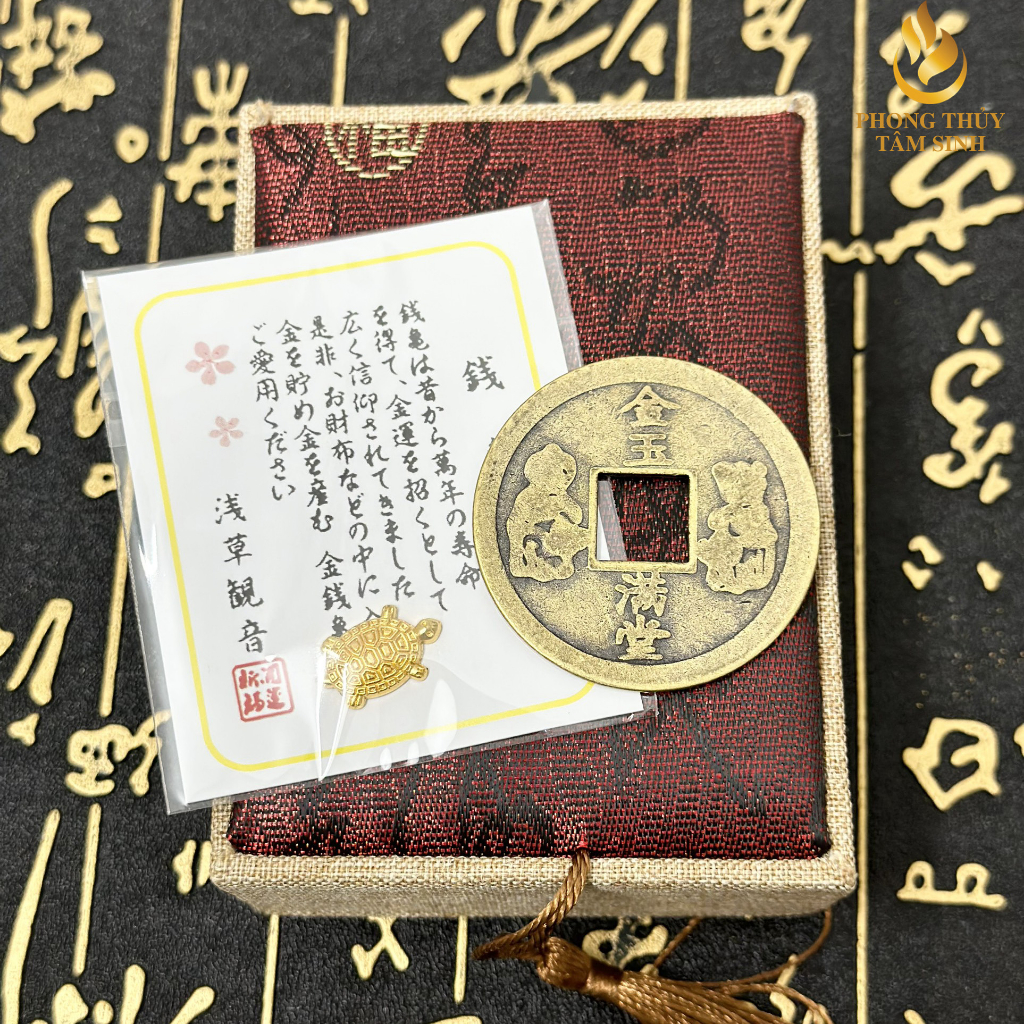 PHONG THỦY
TÂM SINH
銭
銭亀は昔から萬年の寿命
を得て、金運を招くとして
広く信仰されてきました
是非、お財布などの中に
金を貯め金を産む 金銭
ご愛用ください
浅草観音
金玉
满堂